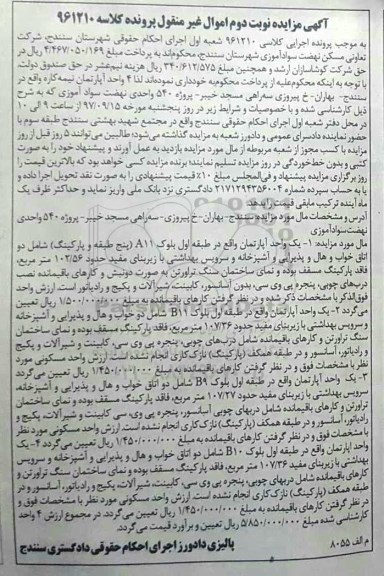 آگهی مزایده نوبت دوم اموال غیر منقول پرونده کلاسه ۹۶۱۲۱۰
به موجب پرونده اجرایی کلاسی ۹۶۱۲۱۰ شعبه اول اجرای احکام حقوقی شهرستان سنندج، شرکت
تعاونی مسکن نهضت سوادآموزی شهرستان سنندج، محکوم‌اند به پرداخت مبلغ ۴/۴۶۷/۰۵۰/۱۶۹ ریال در
حق شرکت کوشاسازان ارشد و همچنین مبلغ ۳۴۰/۶۱۲/۵۷۵ ریال هزینه نیم‌عشر در حق صندوق دولت.
با توجه به اینکه محکوم‌علیه از پرداخت محکوم‌به خودداری نموده‌اند لذا ۴ واحد آپارتمان نیمه‌کاره واقع در
سنندج- بهاران- خ پیروزی سه‌راهی مسجد خیبر- پروژه ۵۴۰ واحدی نهضت سواد آموزی که به شرح
ذیل کارشناسی شده و با خصوصیات و شرایط زیر در روز پنجشنبه مورخه ۹۷/۰۹/۱۵ از ساعت ۹ الی ۱۰
در محل دفتر شعبه اول اجرای احکام حقوقی سنندج واقع در مجتمع شهید بهشتی سنندج طبقه سوم با
حضور نماینده دادسرای عمومی و دادورز شعبه به مزایده گذاشته می‌شود؛ طالبین می‌توانند ۵ روز قبل از روز
مزایده با کسب مجوز از شعبه مربوطه از مال مورد مزایده بازدید به عمل آورند و پیشنهاد خود را به صورت
کتبی و بدون خط‌خوردگی در روز مزایده تسلیم نمایند؛ برنده مزایده کسی خواهد بود که بالاترین قیمت را
روز برگزاری مزایده پیشنهاد و فی‌المجلس مبلغ ۱۰٪ قیمت پیشنهادی را به صورت نقد تحویل اجرا داده و
یا به حساب سپرده شماره ۲۱۷۱۲۹۴۳۵۶۰۰۴ دادگستری نزد بانک ملی واریز نماید و حداکثر ظرف یک
ماه آینده ترکیب مابقی قیمت را بدهد.
آدرس و مشخصات مال مورد مزایده سنندج- بهاران- خ پیروزی- سه‌راهی مسجد خیبر- پروژه ۵۴۰ واحدی
نهضت سوادآموزی
مال مورد مزایده: ۱- یک واحد آپارتمان واقع در طبقه اول بلوک A11 (پنج طبقه و پارکینگ) شامل دو
اتاق خواب و هال و پذیرایی و آشپزخانه و سرویس بهداشتی با زیربنای مفید حدود ۱۰۲/۵۶ متر مربع،
فاقد پارکینگ مسقف بوده و نمای ساختمان سنگ تراورتن به صورت دونبش و کارهای باقیمانده نصب
درب‌های چوبی، پنجره پی وی سی، بدون آسانسور، کابینت، شیرآلات و پکیج و رادیاتور است. ارزش واحد
فوق‌الذکر با مشخصات ذکر شده و در نظر گرفتن کارهای باقیمانده به مبلغ ۱/۵۰۰/۰۰۰/۰۰۰ ریال تعیین
می‌گردد ۲- یک واحد آپارتمان واقع در طبقه اول بلوک B11 شامل دو خواب و هال و پذیرایی و آشپزخانه
و سرویس بهداشتی با زیربنای مفید حدود ۱۰۷/۳۶ متر مربع، فاقد پارکینگ مسقف بوده و نمای ساختمان
سنگ تراورتن و کارهای باقیمانده شامل درب‌های چوبی، پنجره پی وی سی، کابینت و شیرآلات و پکیج
و رادیاتور، آسانسور و در طبقه همکف (پارکینگ) نازک‌کاری انجام نشده است. ارزش واحد مسکونی مورد
نظر با مشخصات فوق و در نظر گرفتن کارهای باقیمانده به مبلغ ۱/۴۵۰/۰۰۰/۰۰۰ ریال تعیین می‌گردد
۳- یک واحد آپارتمان واقع در طبقه اول بلوک B9 شامل دو اتاق خواب و هال و پذیرایی و آشپزخانه،
سرویس بهداشتی با زیربنای مفید حدود ۱۰۷/۲۷ متر مربع، فاقد پارکینگ مسقف بوده و نمای سنگ
تراورتن و کارهای باقیمانده شامل دربهای چوبی آسانسور، پنجره پی وی سی کابینت و شیرآلات، پکیج و
رادیاتور، آسانسور و در طبقه همکف (پارکینگ) نازک‌کاری انجام نشده است. ارزش واحد مسکونی مورد نظر
با مشخصات فوق و در نظر گرفتن کارهای باقیمانده به مبلغ ۱/۴۵۰/۰۰۰/۰۰۰ ریال تعیین می‌گردد ۴- یک
واحد آپارتمان واقع در طبقه اول بلوک B10 شامل دو اتاق خواب و هال و پذیرایی و آشپزخانه و سرویس
بهداشتی با زیربنای مفید ۱۰۷/۳۶ متر مربع، فاقد پارکینگ مسقف بوده و نمای ساختمان سنگ تراورتن و
کارهای باقیمانده شامل دربهای چوبی، پنجره پی وی سی، کابینت، شیرآلات، پکیج و رادیاتور، آسانسور و در
طبقه همکف (پارکینگ) نازک کاری انجام نشده است. ارزش واحد مسکونی مورد نظر با مشخصات فوق و
در نظر گرفتن کارهای باقیمانده به مبلغ ۱/۴۵۰/۰۰۰/۰۰۰ ریال تعیین می‌گردد. در مجموع ارزش ۴ واحد
کارشناسی شده مبلغ ۵/۸۵۰/۰۰۰/۰۰۰ ریال تعیین و برآورد قیمت می‌گردد.
م الف ۸۰۵۵
پالیزی دادورز اجرای احکام حقوقی دادگستری سنندج